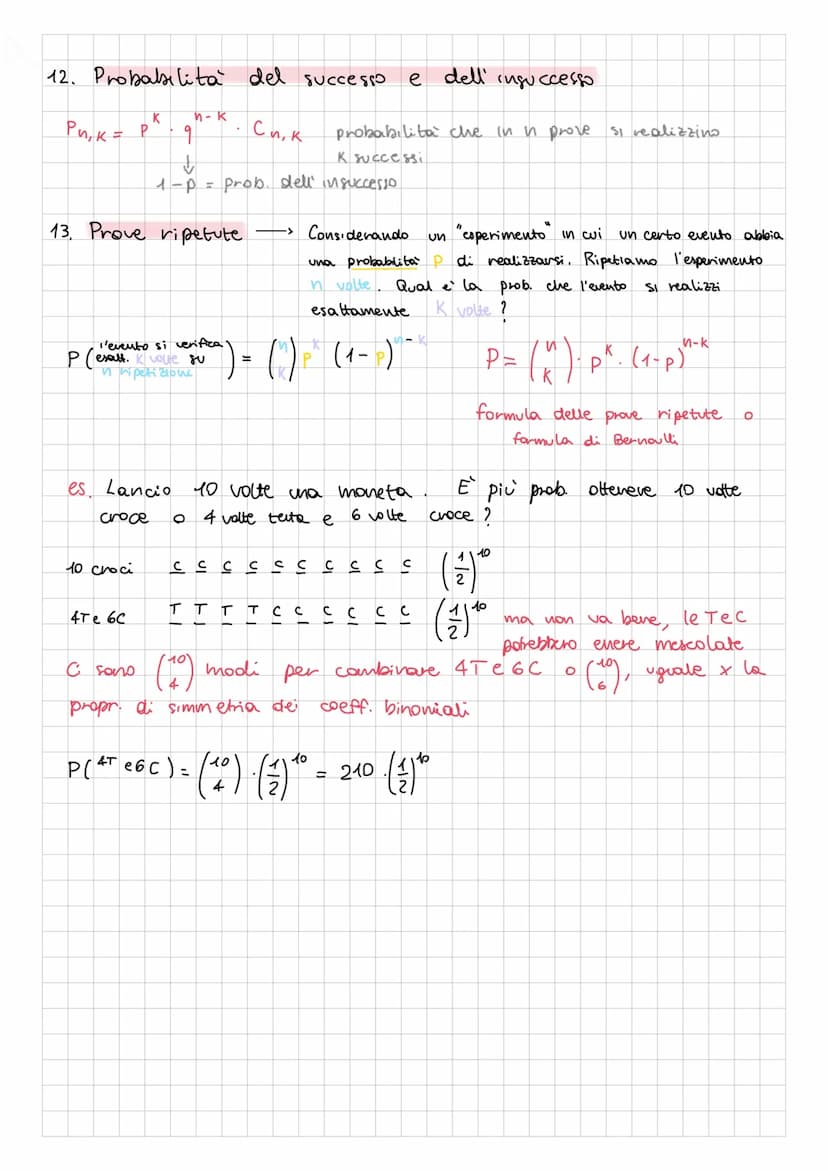 12. Probabilità del successo e dell'insuccesso
Pn,K = p^K · q^n-K · Cn,K probabilità che in n prove si realizzino
K successi
↓
1-p = prob. dell'insuccesso
13. Prove ripetute → Considerando un "esperimento" in cui un certo evento abbia
una probabilità p di realizzarsi. Ripetiamo l'esperimento
n volte. Qual è la prob. che l'evento si realizzi
esattamente K volte?
P(l'evento si verifica esatt. K volte su n ripetizione) = (n K) p^K (1-p)^n-K P = (n K) · p^K · (1-p)^n-K
formula delle prove ripetute o
formula di Bernoulli
es. Lancio 10 volte una moneta. È più prob. ottenere 10 volte
croce o 4 volte testa e 6 volte croce?
10 croci C C C C C C C C C C (1/2)^10
4T e 6C T T T T C C C C C C (1/2)^10 ma non va bene, le T e C
potrebbero essere mescolate
Ci sono (10 4) modi per combinare 4T e 6C o (10 6), uguale x la
propr. di simmetria dei coeff. binomiali
P(4T e 6C) = (10 4) · (1/2)^10 = 210 · (1/2)^10